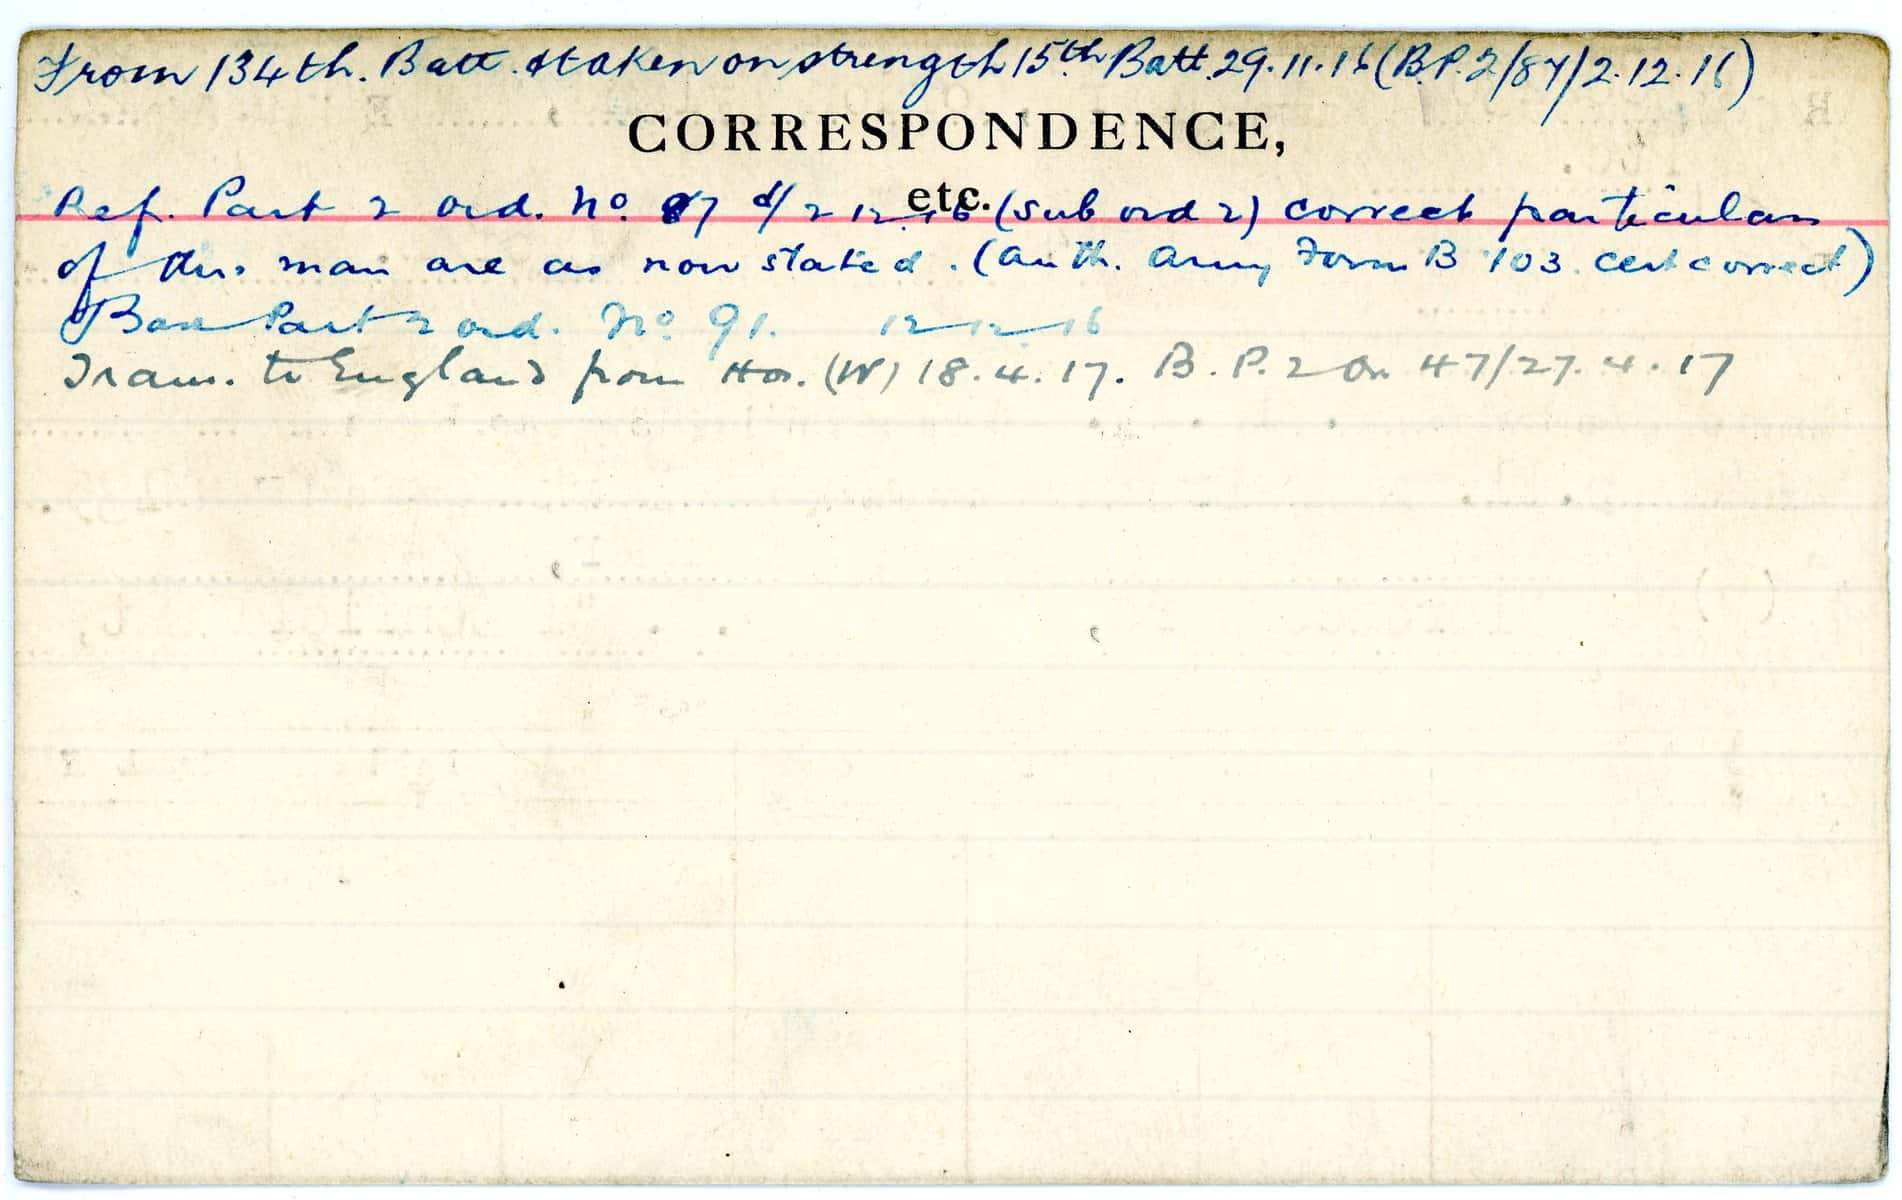 From 134th. Batt. & taken on strength 15th Batt. 29.11.16 (B.P.2/87/2.12.16)
CORRESPONDENCE,
etc.
Ref. Part 2 ord. No. 87 d/ 2 12 16 (sub ord 2) correct particulars
of this man are as now stated. (auth. Army Form B 103. cert correct)
Base Part 2 ord. No. 91. 12 12 16
Trans. to England from Hos. (W) 18.4.17. B.P.2 Or. 47/27.4.17